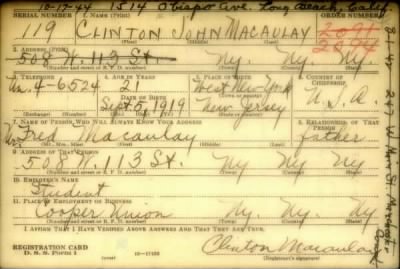 10-17-44 1514 Obispo Ave. Long Beach, Calif.
SERIAL NUMBER 1. NAME (Print) ORDER NUMBER
119 CLINTON JOHN MACAULAY 2091
2094
(First) (Middle) (Last)
2. ADDRESS (Print)
508 W. 113 St. Ny. Ny. Ny.
(Number and street or R. F. D. number) (Town) (County) (State)
3. TELEPHONE 4. AGE IN YEARS 5. PLACE OF BIRTH 6. COUNTRY OF CITIZENSHIP
Un. 4-6524 21 West New York
DATE OF BIRTH (Town or county)
Sept 5, 1919 New Jersey U.S.A.
(Mo.) (Day) (Yr.) (State or country)
7. NAME OF PERSON WHO WILL ALWAYS KNOW YOUR ADDRESS 8. RELATIONSHIP OF THAT PERSON
Mr. Fred Macaulay father
(Mr., Mrs., Miss) (First) (Middle) (Last)
9. ADDRESS OF THAT PERSON
508 W. 113 St. Ny Ny Ny
(Number and street or R. F. D. number) (Town) (County) (State)
10. EMPLOYER'S NAME
Student
11. PLACE OF EMPLOYMENT OR BUSINESS
Cooper Union Ny. Ny. Ny
(Number and street or R. F. D. number) (Town) (County) (State)
I AFFIRM THAT I HAVE VERIFIED ABOVE ANSWERS AND THAT THEY ARE TRUE.
REGISTRATION CARD
D. S. S. Form 1
Clinton Macaulay
(Registrant's signature)